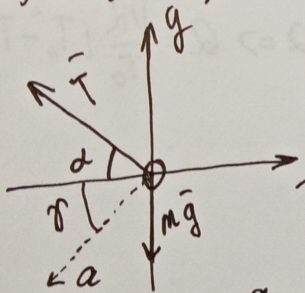 y
T̄
α
γ
mḡ
a